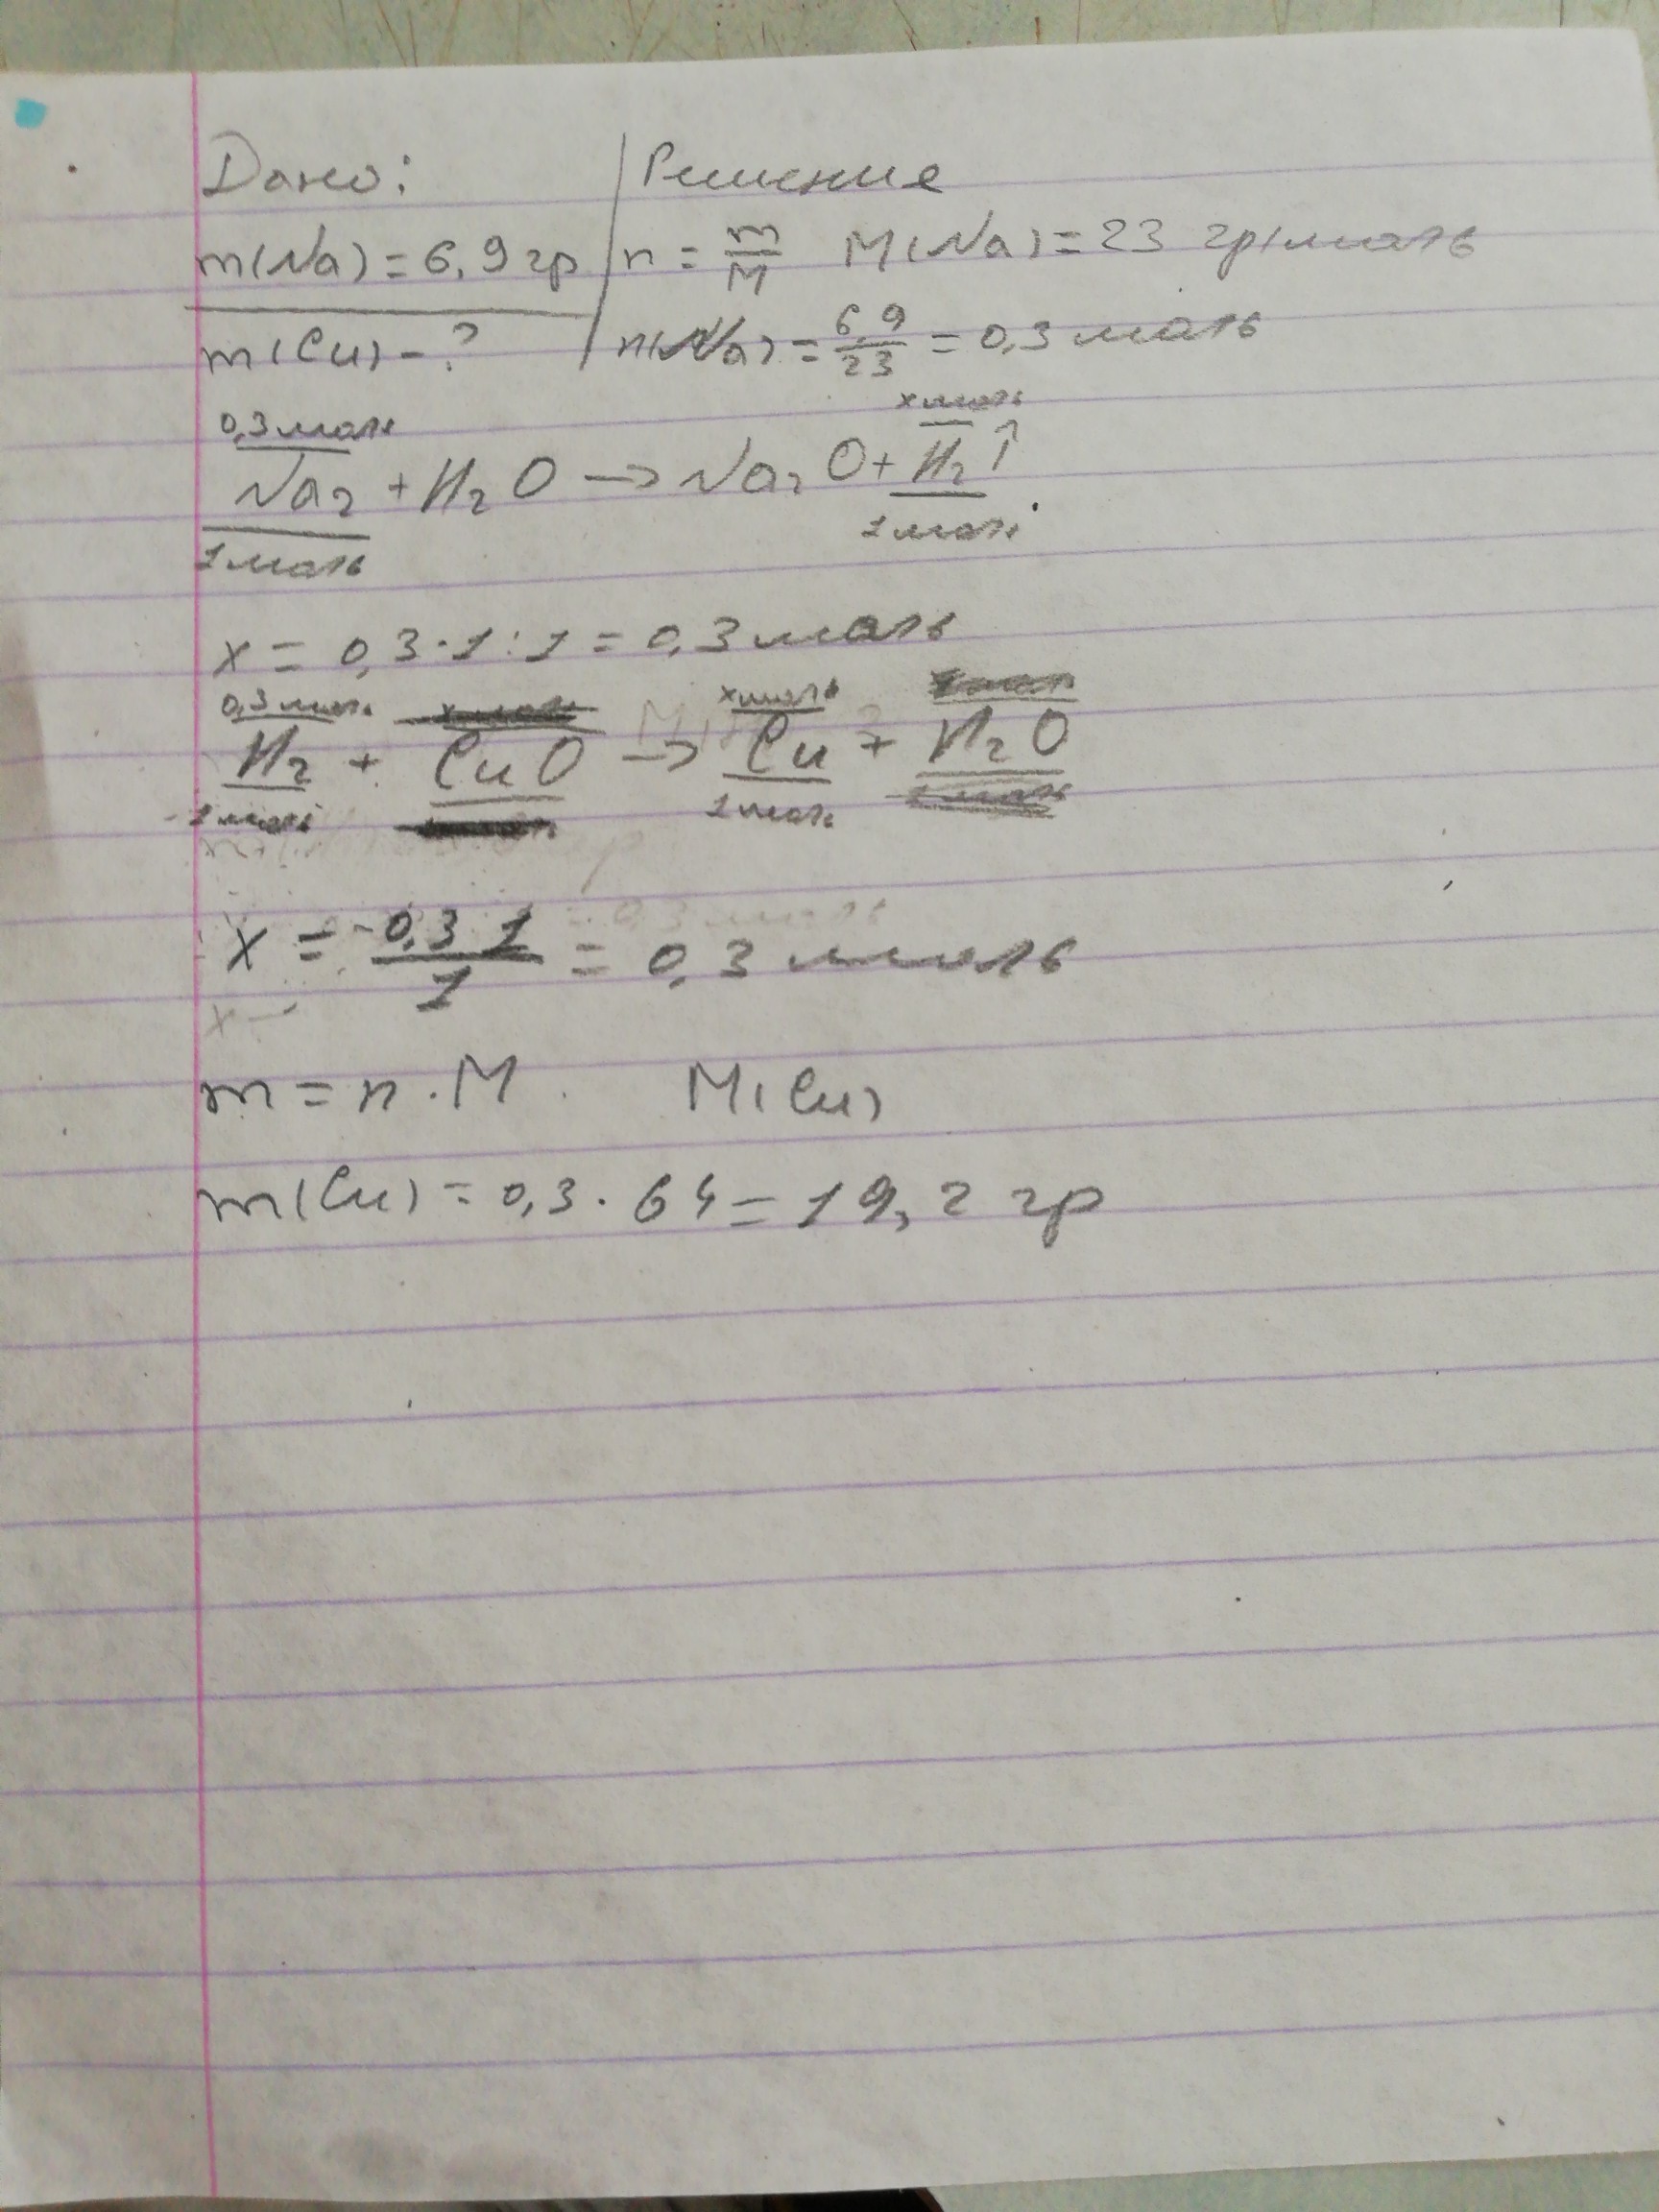 Дано: Решение
m(Na) = 6,9 гр n = m/M M(Na) = 23 гр/моль
m(Cu) - ? n(Na) = 6,9/23 = 0,3 моль
0,3 моль x моль
Na₂ + H₂O → Na₂O + H₂↑
1 моль 1 моль
x = 0,3 · 1 : 1 = 0,3 моль
0,3 моль x моль
H₂ + CuO → Cu + H₂O
1 моль 1 моль
x = 0,3 1/1 = 0,3 моль
m = n · M M(Cu)
m(Cu) = 0,3 · 64 = 19,2 гр